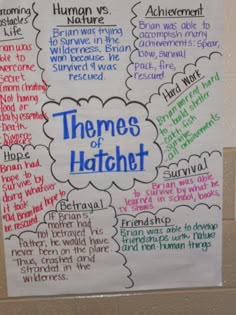 rcoming
stacles
Life
Human vs.
Nature
Brian was trying
to survive in the
wilderness, Brian
won because he
survived & was
rescued.
Achievement
Brian was able to
accomplish many
achievements: spear,
bow, survival
pack, fire,
rescued
was
able to
overcome
secret
Not having
food
essentials
Death
Divorce
Hard Work
Brian
hard
shelter
fish
all
achievements.
Themes
of
Hatchet
Hope
Brian had
hope to
survive by
doing whatever
it took to
be rescued
Survival
Brian was able to
survive by what he
learned in school, books,
TV shows
Betrayal
If Brian's
mother had
not betrayed his
Father, he would have
never been on the plane.
Thus, crashed and
stranded in the
wilderness.
Friendship
Brian was able to develop
friendships with nature
and non-human things.